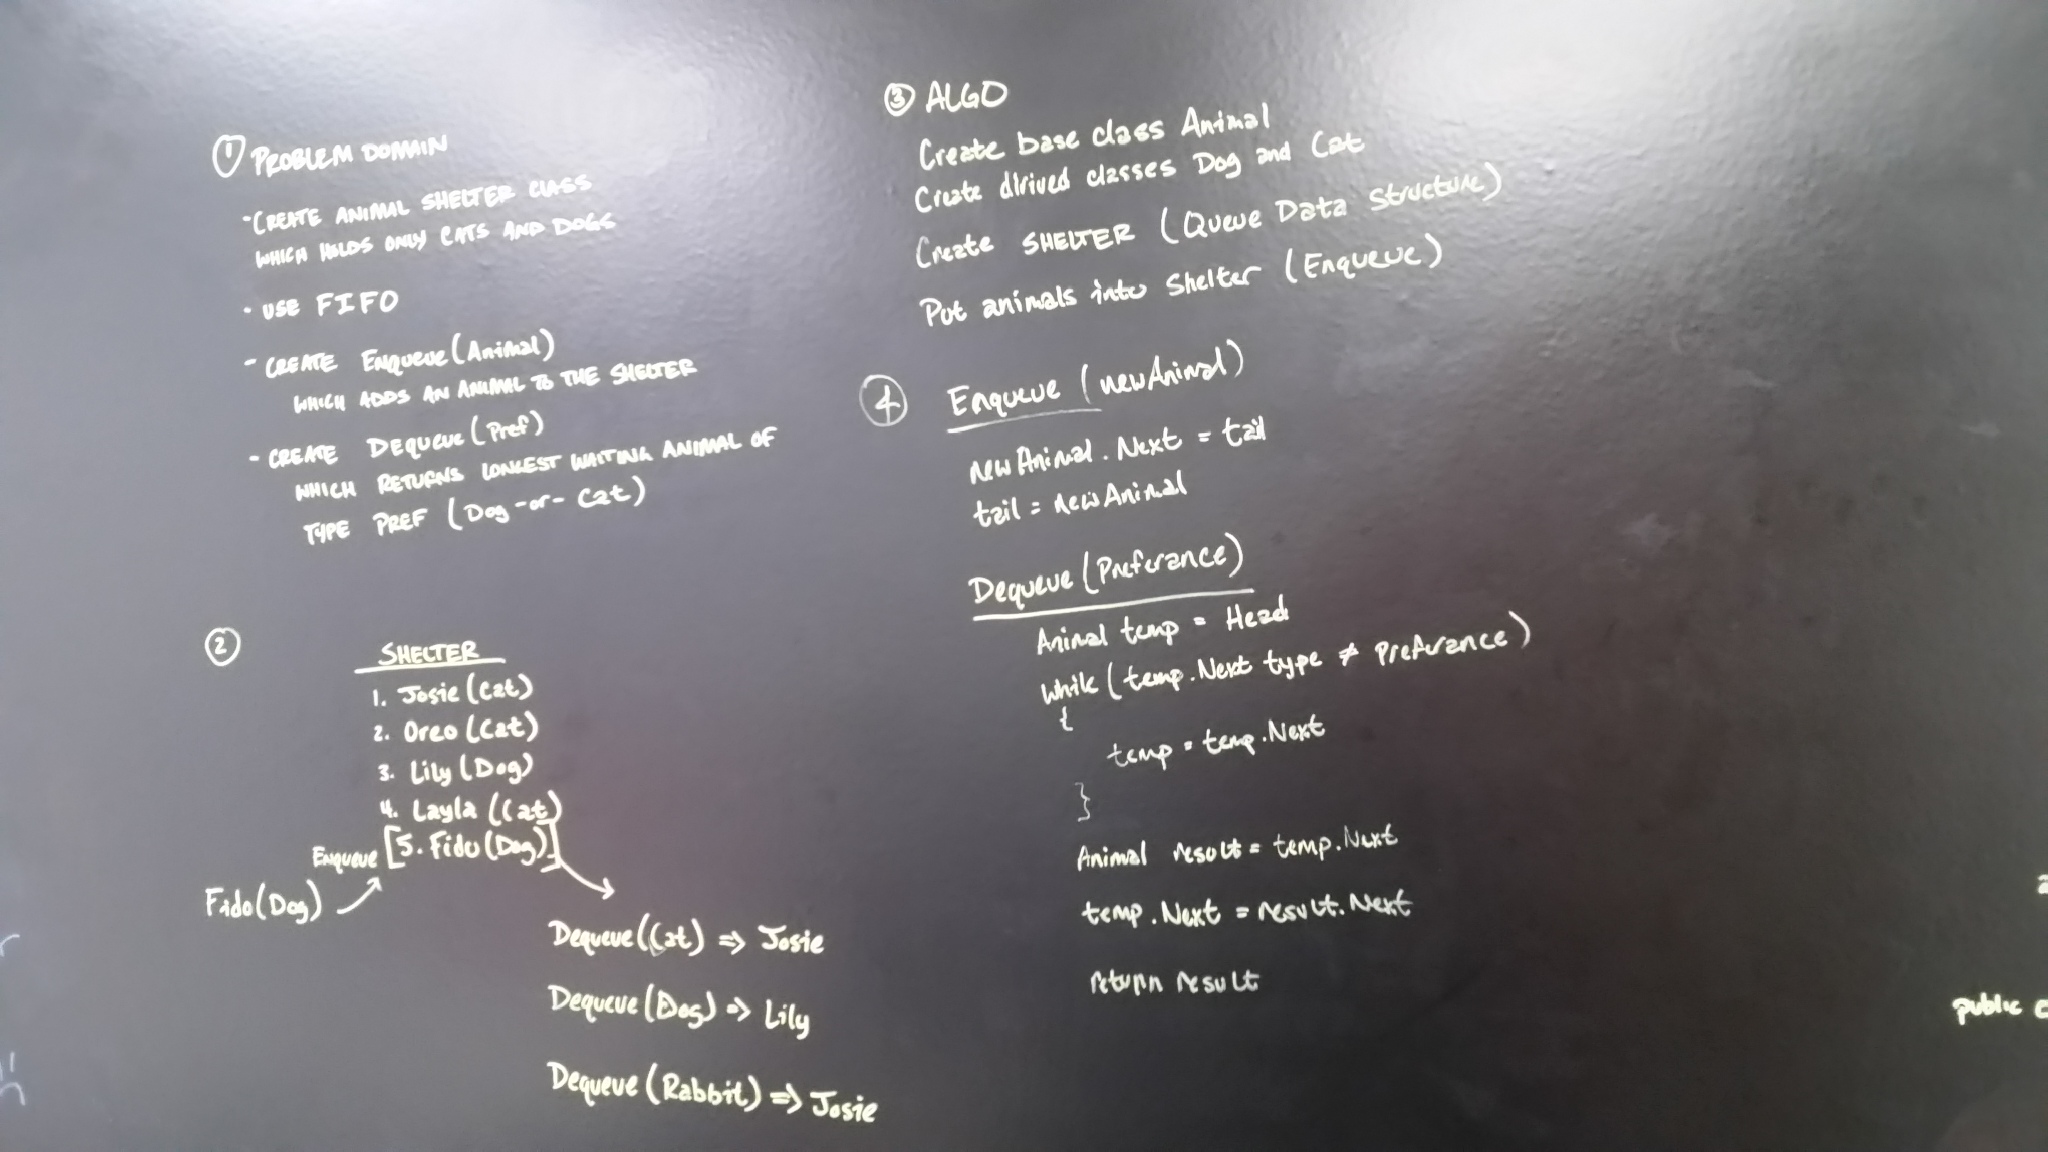 ① PROBLEM DOMAIN
- CREATE ANIMAL SHELTER CLASS
WHICH HOLDS ONLY CATS AND DOGS
• USE FIFO
- CREATE Enqueue (Animal)
WHICH ADDS AN ANIMAL TO THE SHELTER
- CREATE DEqueue (Pref)
WHICH RETURNS LONGEST WAITING ANIMAL OF
TYPE PREF (Dog -or- Cat)
②
SHELTER
1. Josie (Cat)
2. Oreo (Cat)
3. Lily (Dog)
4. Layla (Cat)
Enqueue [5. Fido (Dog)]
Fido (Dog)
Dequeue (Cat) => Josie
Dequeue (Dog) => Lily
Dequeue (Rabbit) => Josie
③ ALGO
Create base class Animal
Create dirived classes Dog and Cat
Create SHELTER (Queue Data Structure)
Put animals into Shelter (Enqueue)
④ Enqueue (newAnimal)
newAnimal.Next = tail
tail = newAnimal
Dequeue (Preferance)
Animal temp = Head
while (temp.Next type ≠ Preferance)
{
temp = temp.Next
}
Animal result = temp.Next
temp.Next = result.Next
return result
public